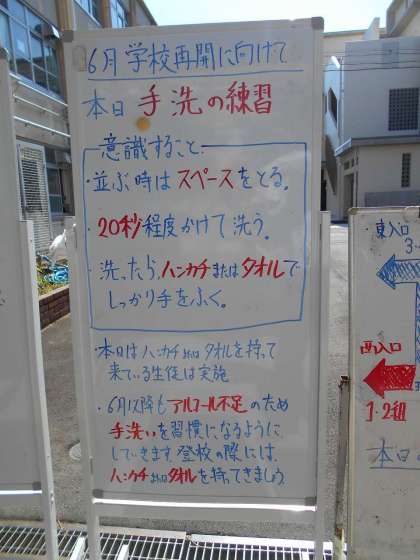 6月学校再開に向けて
本日 手洗の練習
意識すること
・並ぶ時はスペースをとる。
・20秒程度かけて洗う。
・洗ったら、ハンカチまたはタオルで
しっかり手をふく。
・本日はハンカチまたはタオルを持って
来ている生徒は実施
・6月以降もアルコール不足のため
手洗いを習慣になるように
していきます。登校の際には、
ハンカチまたはタオルを持ってきましょう。
東入口
3-
西入口
1-2組
本日の